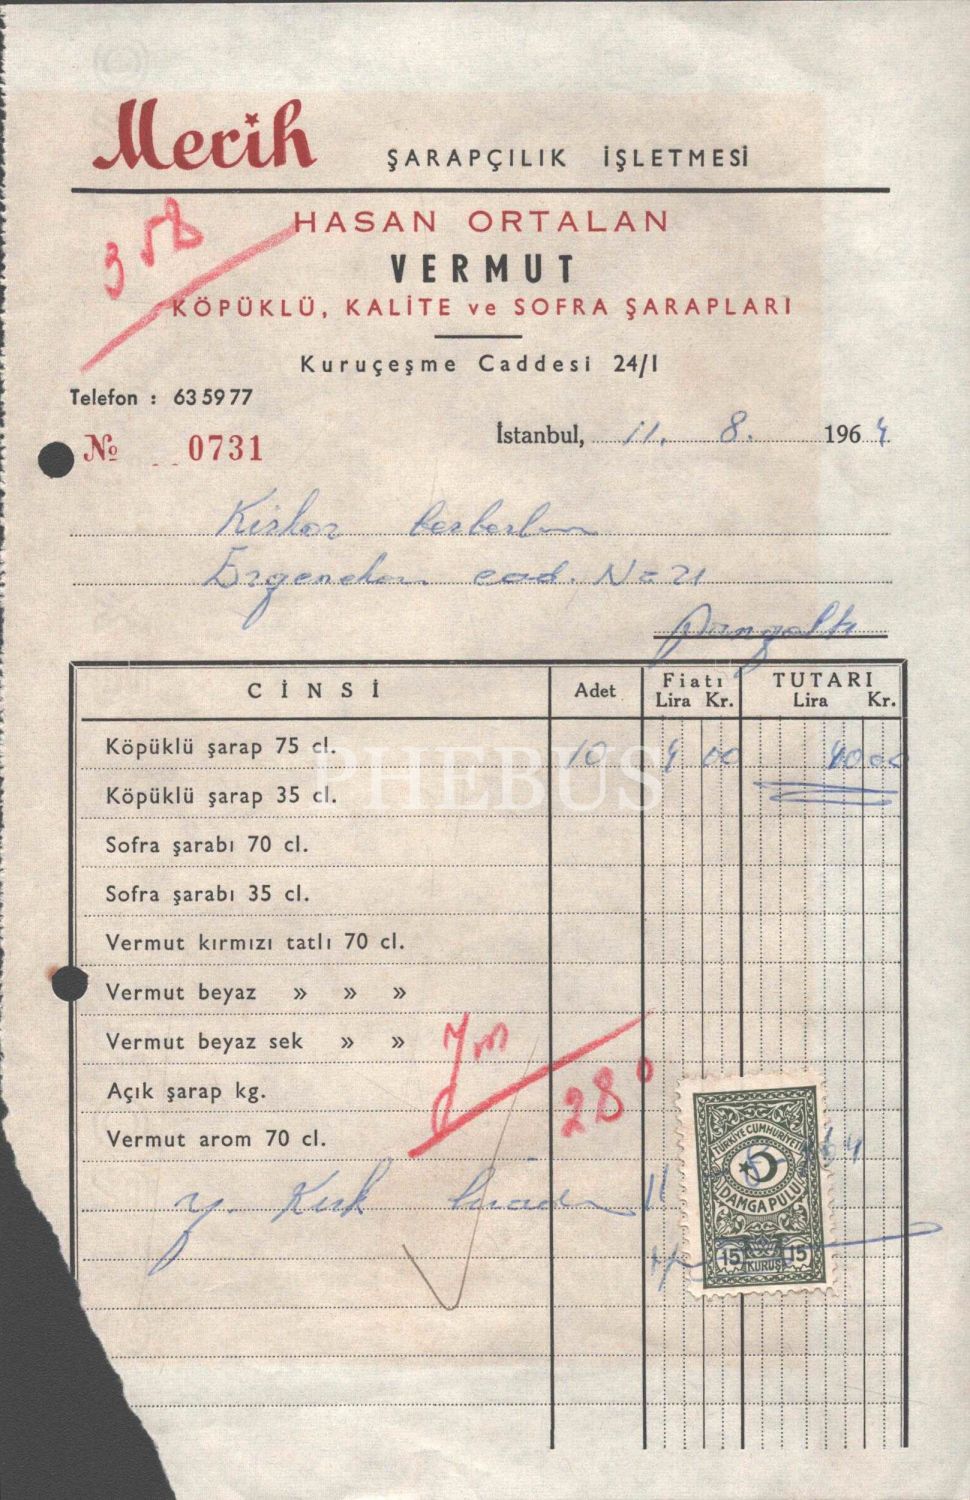 Merih ŞARAPÇILIK İŞLETMESİ
HASAN ORTALAN
358
VERMUT
KÖPÜKLÜ, KALİTE ve SOFRA ŞARAPLARI
Kuruçeşme Caddesi 24/1
Telefon : 63 59 77
№ 0731
İstanbul, 11. 8. 1964
Kirkor
Ergenekon cad. N= 21
Pangaltı
CİNSİ Adet Fiatı Lira Kr. TUTARI Lira Kr.
Köpüklü şarap 75 cl. 10 4 00 40 00
PHEBUS
Köpüklü şarap 35 cl.
Sofra şarabı 70 cl.
Sofra şarabı 35 cl.
Vermut kırmızı tatlı 70 cl.
Vermut beyaz » » »
Vermut beyaz sek » »
Açık şarap kg.
280
Vermut arom 70 cl.
y. Kırk liradır
TÜRKİYE CUMHURİYETİ
DAMGA PULU
15 KURUŞ 15